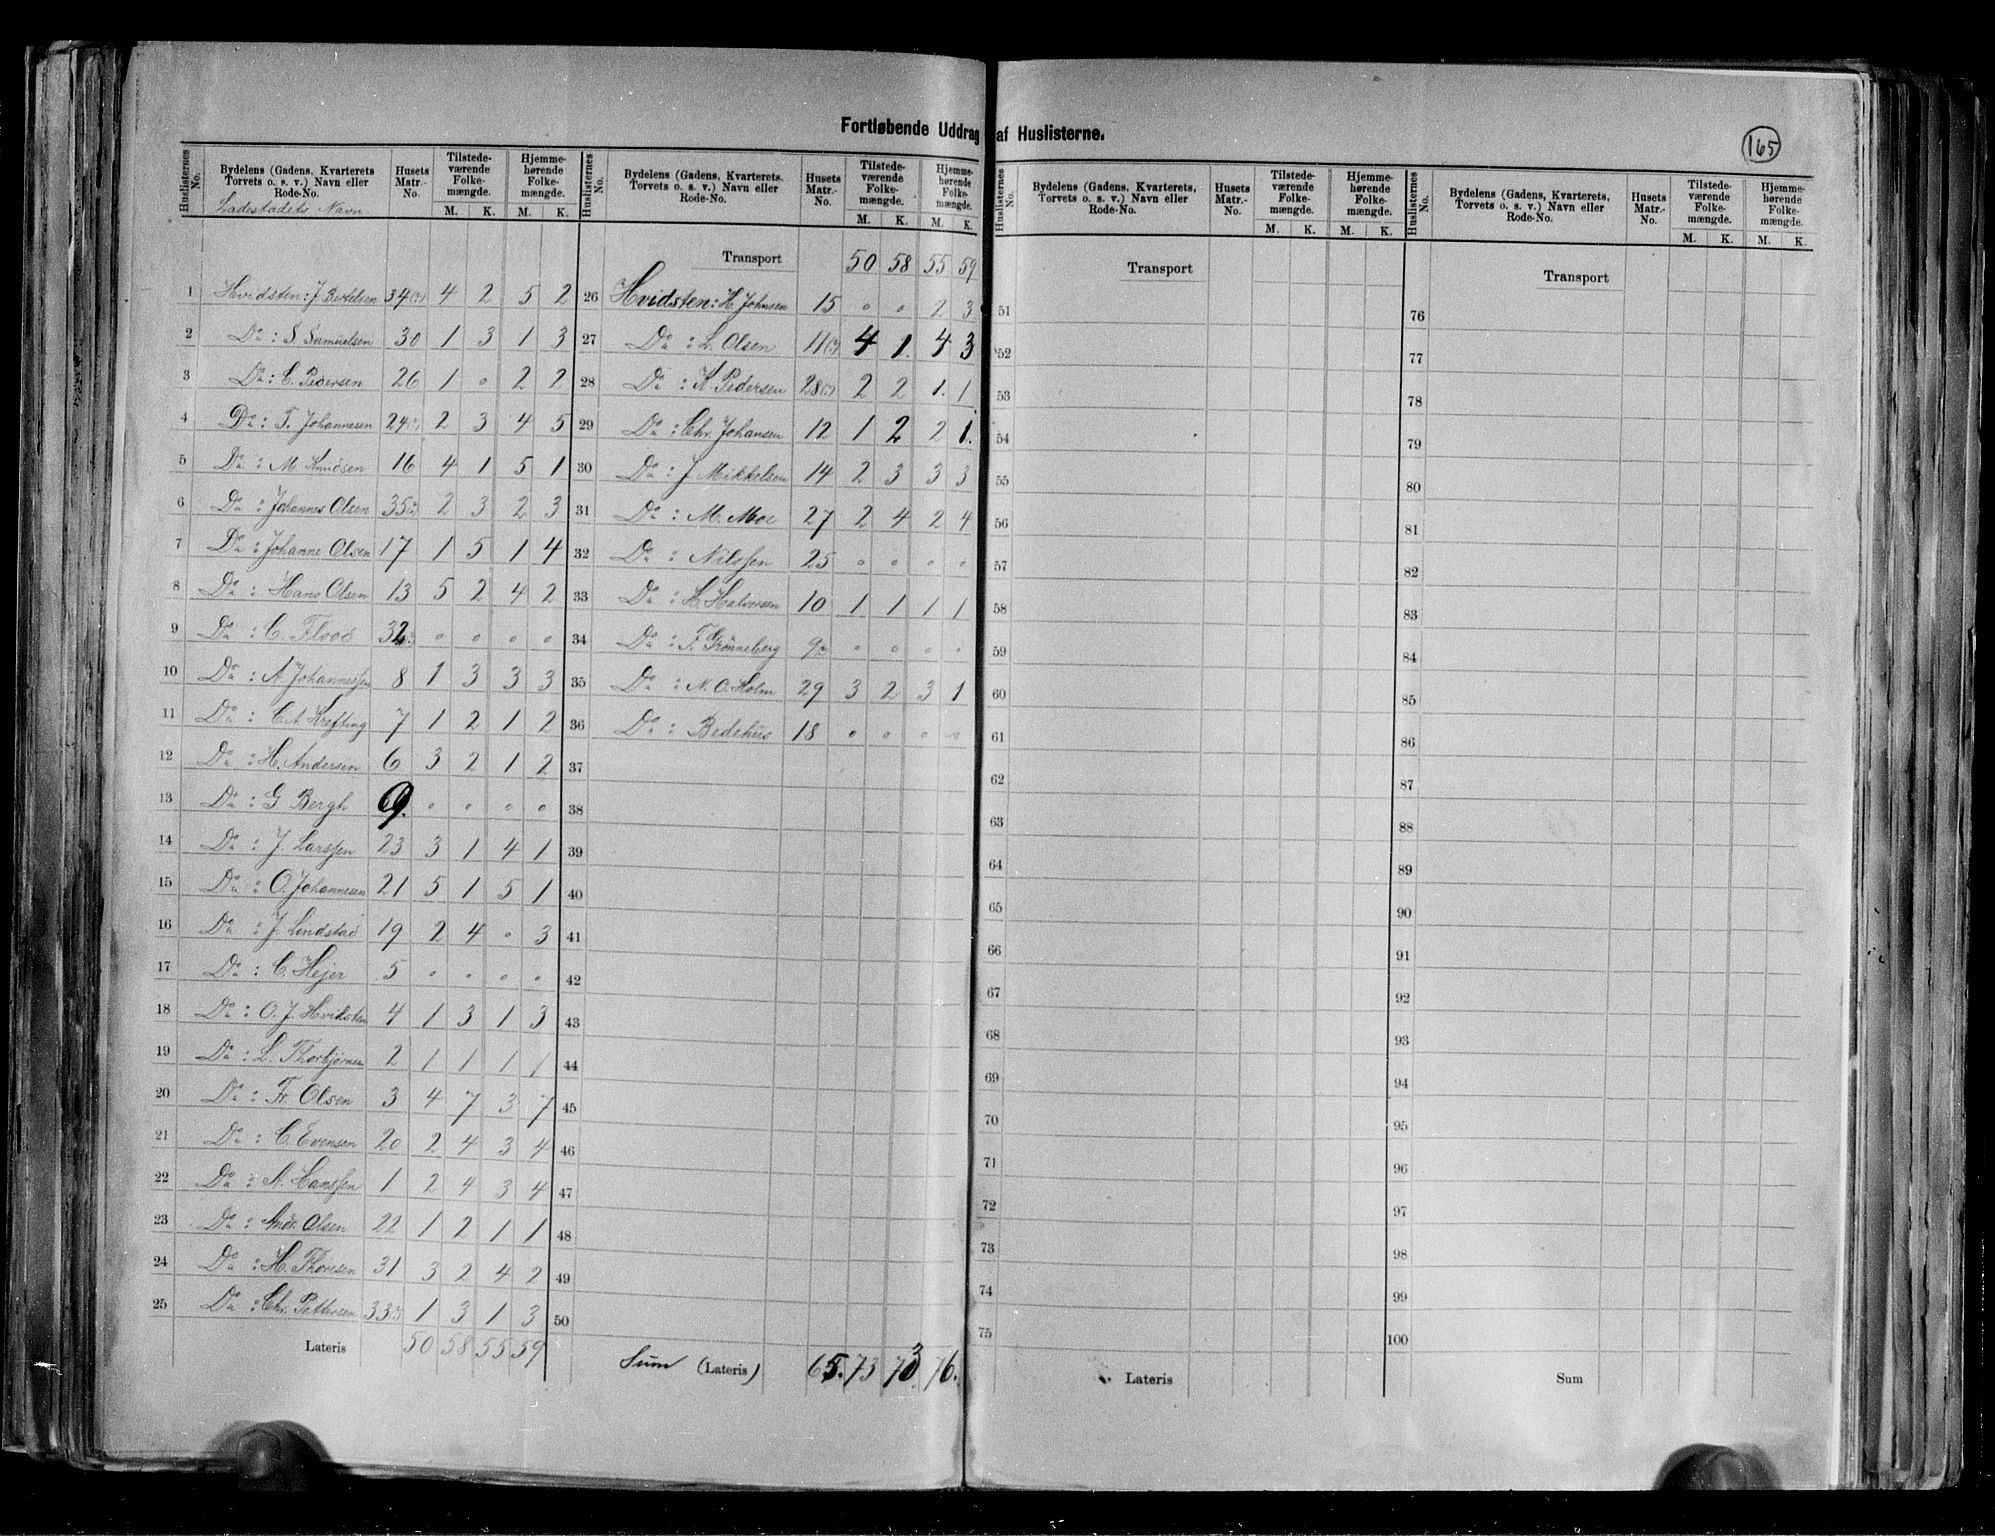 Fortløbende Uddrag af Huslisterne.
165
Huslisternes No. | Bydelens (Gadens, Kvarterets Torvets o. s. v.) Navn eller Rode-No. Ladestadets Navn | Husets Matr.-No. | Tilstedeværende Folkemængde. M. K. | Hjemmehørende Folkemængde. M. K.
1 Hvidsten: J Bertelsen 34 4 2 5 2
2 Do : S Samuelsen 30 1 3 1 3
3 Do : C. Pedersen 26 1 0 2 2
4 Do : T. Johannesen 24 2 3 4 5
5 Do : M. Knudsen 16 4 1 5 1
6 Do : Johannes Olsen 35 2 3 2 3
7 Do : Johanne Olsen 17 1 5 1 4
8 Do : Hans Olsen 13 5 2 4 2
9 Do : C. Flood 32 0 0 0 0
10 Do : A Johannessen 8 1 3 3 3
11 Do : C A Krefting 7 1 2 1 2
12 Do : H. Andersen 6 3 2 1 2
13 Do : G Bergh 9. 0 0 0 0
14 Do : J. Larssen 23 3 1 4 1
15 Do : O. Johannesen 21 5 1 5 1
16 Do : J Lindstad 19 2 4 0 3
17 Do : C. Hejer 5 0 0 0 0
18 Do : O. J. Hvidsten 4 1 3 1 3
19 Do : L. Thorbjørnsen 2 1 1 1 1
20 Do : Fr. Olsen 3 4 7 3 7
21 Do : C. Evensen 20 2 4 3 4
22 Do : A. Hanssen 1 2 4 3 4
23 Do : Andr. Olsen 22 1 2 1 1
24 Do : H. Thoresen 31 3 2 4 2
25 Do : Chr. Pettersen 33 1 3 1 3
Lateris 50 58 55 59
Huslisternes No. | Bydelens (Gadens, Kvarterets, Torvets o. s. v.) Navn eller Rode-No. | Husets Matr.-No. | Tilstedeværende Folkemængde. M. K. | Hjemmehørende Folkemængde. M. K.
Transport 50 58 55 59
26 Hvidsten: H. Johnsen 15 0 0 2 3
27 Do : L. Olsen 11 4 1. 4 3
28 Do : K. Pedersen 28 2 2 1. 1
29 Do : Chr. Johansen 12 1 2 2 1.
30 Do : J Mikkelsen 14 2 3 3 3
31 Do : M. Moe 27 2 4 2 4
32 Do : Nilssen 25 0 0 0 0
33 Do : H. Halvorsen 10 1 1 1 1
34 Do : F. Grønneberg 9 0 0 0 0
35 Do : N. O. Holm 29 3 2 3 1
36 Do : Bedehus 18 0 0 0 0
37
38
39
40
41
42
43
44
45
46
47
48
49
50
Sum (Lateris) 65. 73 73. 76.
Huslisternes No. | Bydelens (Gadens, Kvarterets, Torvets o. s. v.) Navn eller Rode-No. | Husets Matr.-No. | Tilstedeværende Folkemængde. M. K. | Hjemmehørende Folkemængde. M. K.
Transport
51
52
53
54
55
56
57
58
59
60
61
62
63
64
65
66
67
68
69
70
71
72
73
74
75
Lateris
Huslisternes No. | Bydelens (Gadens, Kvarterets, Torvets o. s. v.) Navn eller Rode-No. | Husets Matr.-No. | Tilstedeværende Folkemængde. M. K. | Hjemmehørende Folkemængde. M. K.
Transport
76
77
78
79
80
81
82
83
84
85
86
87
88
89
90
91
92
93
94
95
96
97
98
99
100
Sum